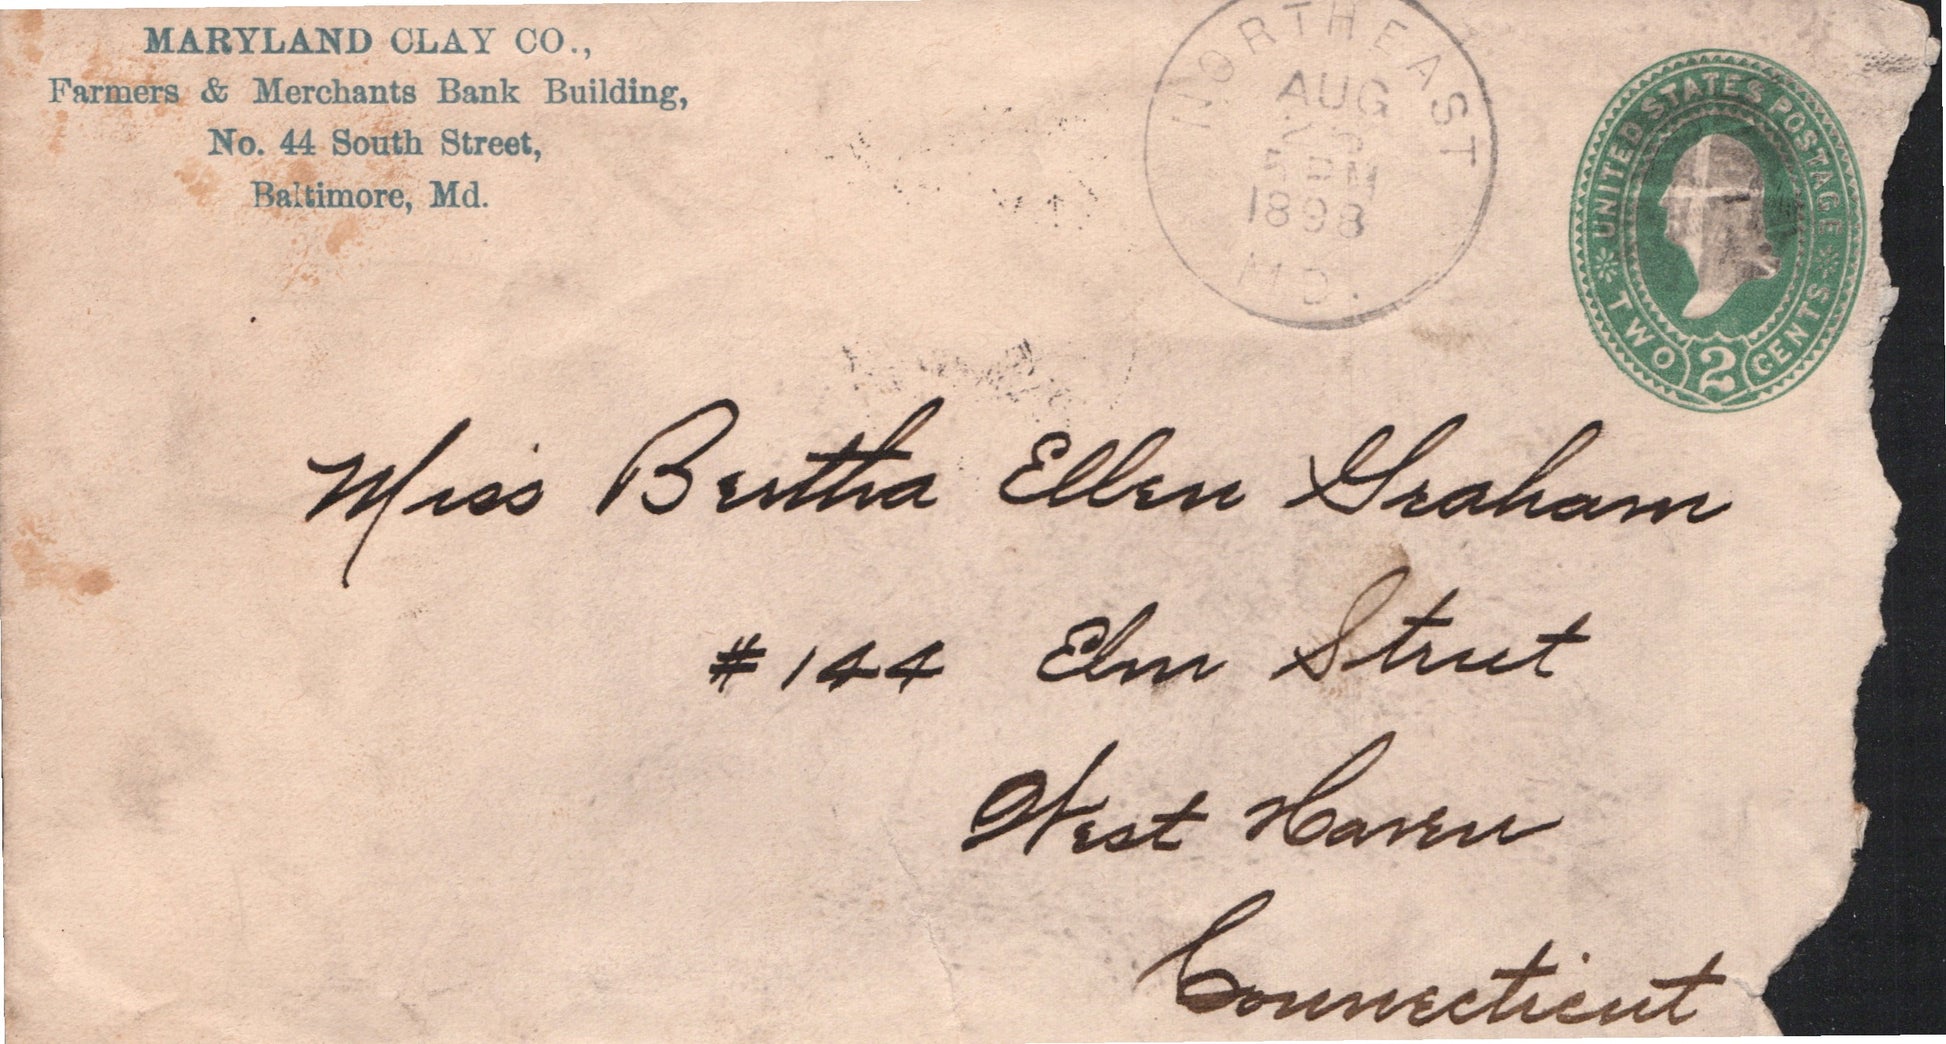 MARYLAND CLAY CO.,
Farmers & Merchants Bank Building,
No. 44 South Street,
Baltimore, Md.
NORTH EAST
AUG
1898
MD.
UNITED STATES POSTAGE
TWO 2 CENTS
Miss Bertha Ellen Graham
#144 Elm Street
West Haven
Connecticut